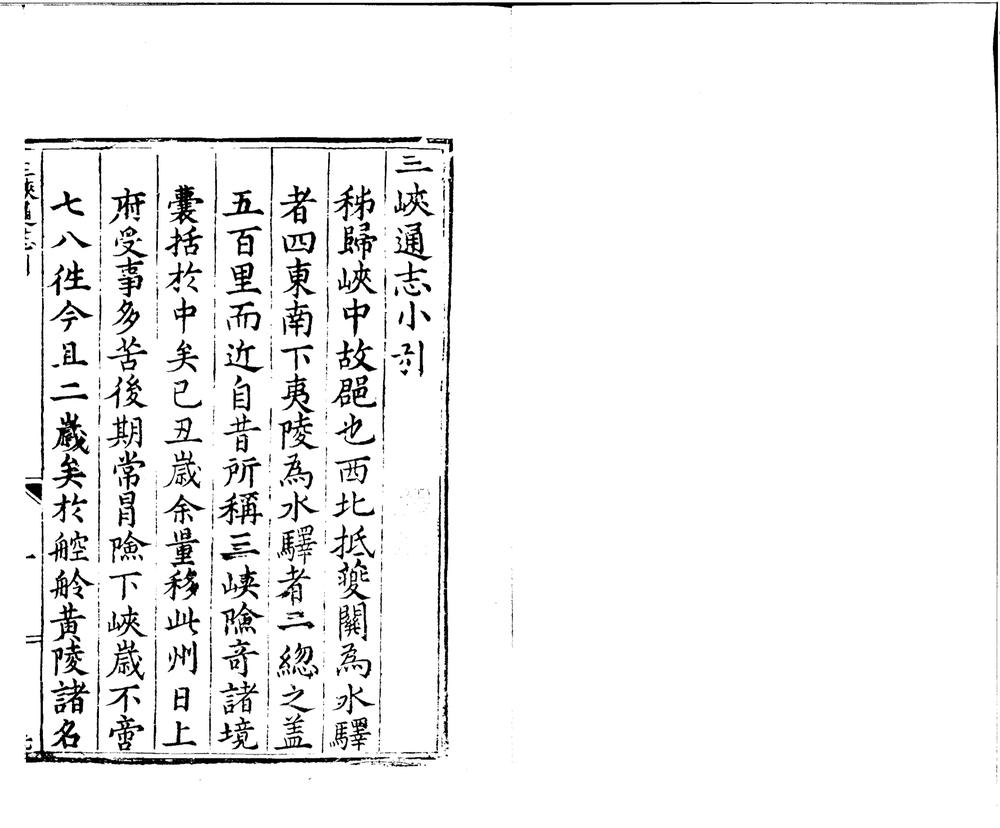 三峽通志小引
秭歸峽中故郡也西北抵夔關為水驛
者四東南下夷陵為水驛者三總之盖
五百里而近自昔所稱三峽險奇諸境
囊括於中矣已丑歲余量移此州日上
府受事多苦後期常冒險下峽歲不啻
七八徃今且二歲矣於崆舲黃陵諸名
三峽通志引